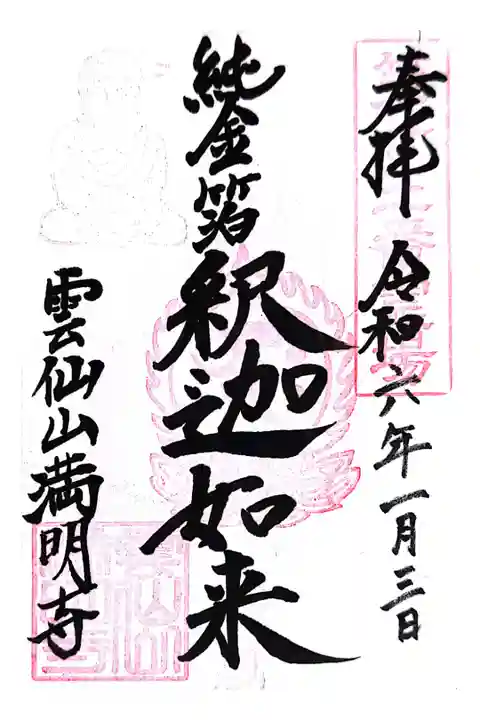 奉拝 令和六年一月三日
純金箔 釈迦如来
雲仙山満明寺